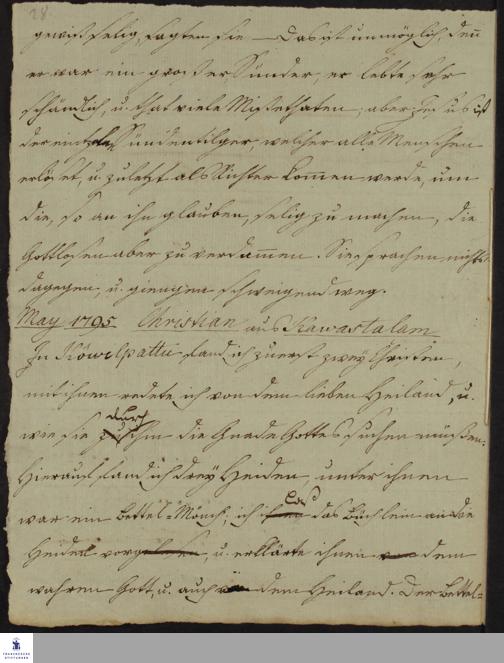 28.
gewiß selig, sagten sie — Das ist unmöglich, deñ
er war ein großer Sünder, er lebte sehr
schändlich, u. that viele Mißethaten; aber Jesus ist
der einzele Sündentilger, welcher alle Menschen
erlöset, u. zuletzt als Richter kom̅en werde, um
die, so an ihn glauben, selig zu machen, die
Gottlosen aber zu verdam̅en. Sie sprachen nichts
dagegen, u. giengen schweigend weg.
May 1795. Christian aus Kawastalam
In Köwilpattu fand ich zuerst zwey Christen,
mit ihnen redete ich von dem lieben Heiland, u.
wie sie durch ihm die Gnade Gottes suchen müßen.
Hierauf fand ich drey Heiden, unter ihnen
war ein Bettel-Mönch; ich las das Büchlein an die
Heiden vor, u. erklärte ihnen dem
wahren Gott, u. auch dem Heiland. Der Bettel-
FRANCKESCHE
STIFTUNGEN